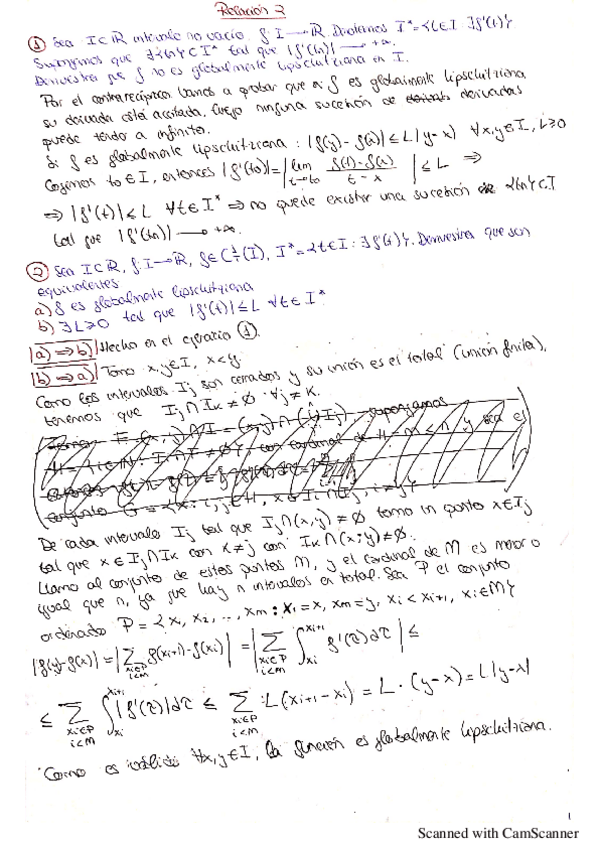 Relación 2
① Sea I⊂ℝ intervalo no vacío. f: I→ℝ. Denotamos I*={t∈I: ∃f'(t)}.
Supongamos que ∃{tn}⊂I* tal que |f'(tn)| → +∞.
Demuestra que f no es globalmente lipschitziana en I.
Por el contrarecíproco vamos a probar que si f es globalmente lipschitziana
su derivada está acotada, luego ninguna sucesión de derivadas
puede tender a infinito.
Si f es globalmente lipschitziana: |f(y)-f(x)| ≤ L|y-x| ∀x,y∈I, L≥0
Cogemos to∈I, entonces |f'(to)| = |lim t→to f(t)-f(x) / t-x| ≤ L ⇒
⇒ |f'(t)| ≤ L ∀t∈I* ⇒ no puede existir una sucesión {tn}⊂I
tal que |f'(tn)| → +∞.
② Sea I⊂ℝ, f: I→ℝ, I*={t∈I: ∃f'(t)}. Demuestra que son
equivalentes
a) f es globalmente lipschitziana
b) ∃L≥0 tal que |f'(t)| ≤ L ∀t∈I*
a) ⇒ b) Hecho en el ejercicio ①.
b) ⇒ a) Tomo x,y∈I, x<y.
Como los intervalos Ij son cerrados y su unión es el total (unión finita),
tenemos que Ij∩Ik≠∅ ∀j≠k.
De cada intervalo Ij tal que Ij∩(x,y)≠∅ tomo un punto x∈Ij
tal que x∈Ij∩Ik con k≠j con Ik∩(x,y)≠∅.
Llamo al conjunto de estos puntos M, y el cardinal de M es menor o
igual que n, ya que hay n intervalos en total. Sea P el conjunto
ordenado P={x1, x2, ..., xm: x1=x, xm=y, xi<xi+1, xi∈M}
|f(y)-f(x)| = |∑ xi∈P i<m f(xi+1)-f(xi)| = |∑ xi∈P i<m ∫ xi xi+1 f'(τ)dτ| ≤
≤ ∑ xi∈P i<m ∫ xi xi+1 |f'(τ)|dτ ≤ ∑ xi∈P i<m L(xi+1-xi) = L·(y-x) = L|y-x|
Como es válido ∀x,y∈I, la función es globalmente lipschitziana.
1
Scanned with CamScanner